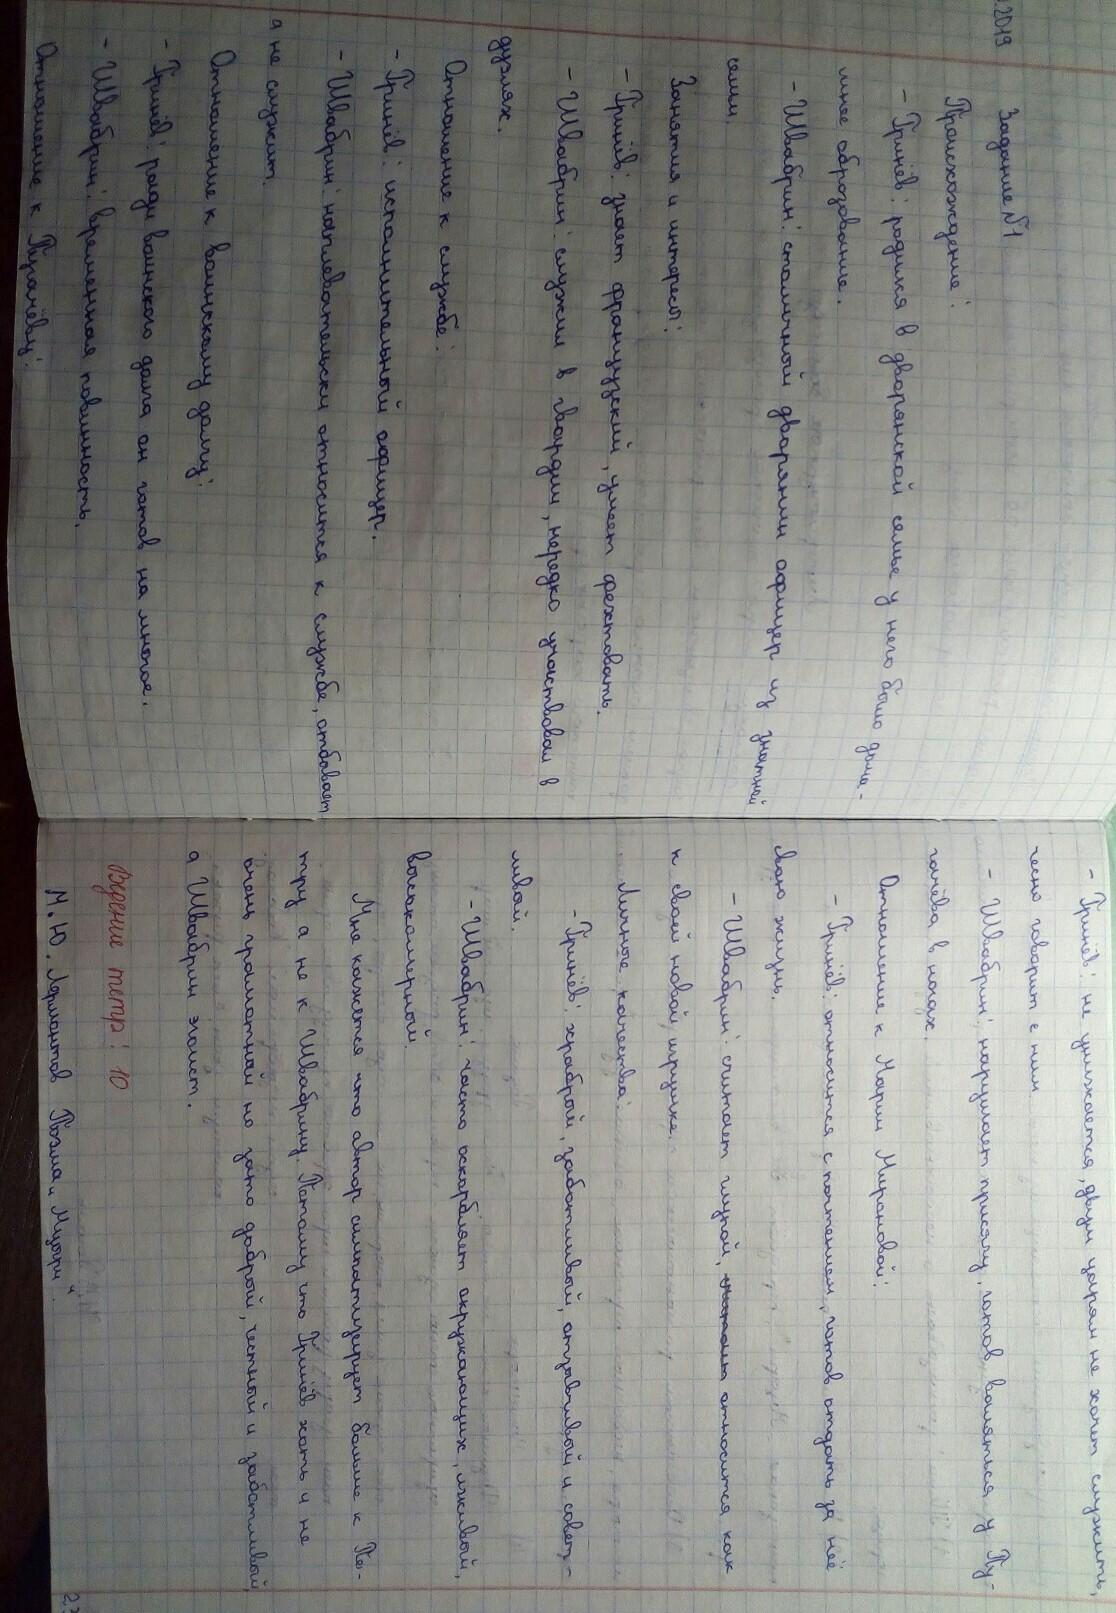 .2019
Задание №1
Происхождение:
- Гринёв: родился в дворянской семье у него было дома-
шнее образование.
- Швабрин: столичный дворянин офицер из знатной
семьи.
Занятия и интересы:
- Гринёв: знает французский, умеет фехтовать.
- Швабрин: служил в гвардии, нередко участвовал в
дуэлях.
Отношение к службе:
- Гринёв: исполнительный офицер.
- Швабрин: наплевательски относится к службе, отбывает
а не служит.
Отношение к воинскому долгу:
- Гринёв: ради воинского долга он готов на многое.
- Швабрин: временная повинность.
Отношение к Пугачёву:
- Гринёв: не унижается, двум царям не хочет служить,
чесно говорит с ним
- Швабрин: нарушает присягу, готов валяться у Пу-
гачёва в ногах.
Отношение к Марии Мироновой:
- Гринёв: относится с почтением, готов отдать за неё
свою жизнь.
- Швабрин: считает глупой, относится как
к своей новой игрушке.
Личные качества:
- Гринёв: храбрый, заботливый, отзывчивый и совест-
ливый.
- Швабрин: часто оскарбляет окружающих, лживый,
высокомерный.
Мне кажется что автор симпатизирует больше к Пе-
тру а не к Швабрину. Потому что Гринёв хоть и не
очень грамотной но зато добрый, честный и заботливый
а Швабрин эгоист.
Ведение тетр: 10
М.Ю. Лермонтов Поэма „Мцыри".